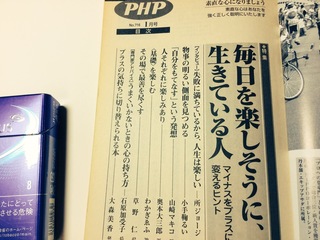 素直な心になりましょう
素直な心はあなたを
強く正しく聡明にいたします
PHP
No.776 1月号
目次
特集
毎日を楽しそうに、
生きている人
マイナスをプラスに
変えるヒント
失敗に満ちているから、人生は楽しい
所ジョージ
物事の明るい側面を見つめる
小手鞠るい
「自分をもてなす」という発想
山崎マキコ
人それぞれに楽しみあり
奥本大三郎
「基礎」を楽しむ
わかぎゑふ
その場で最善を尽くす
草野仁
うまくいかないときの心の持ち方
石原加受子
プラスの気持ちに切り替えられる本
大森美香
8